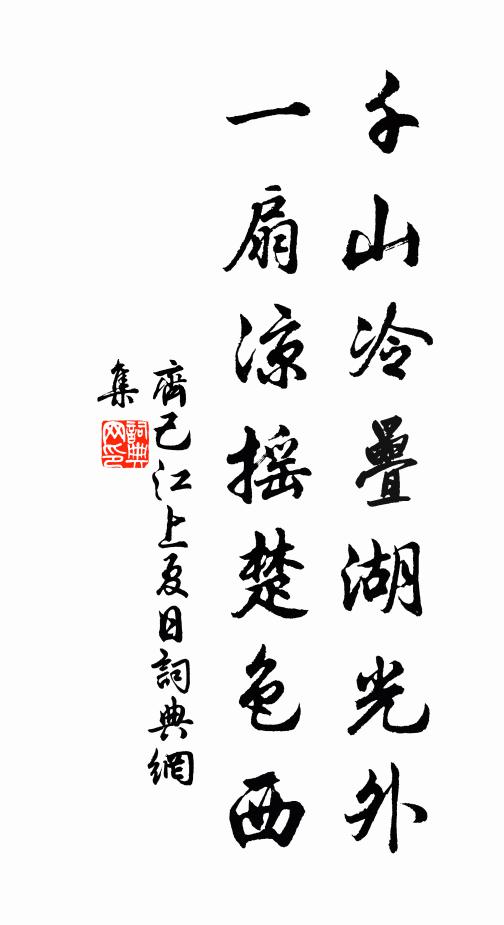 千山冷疊湖光外
一扇凉摇楚色西
齊己江上夏日詞典網
集
詞典
网印